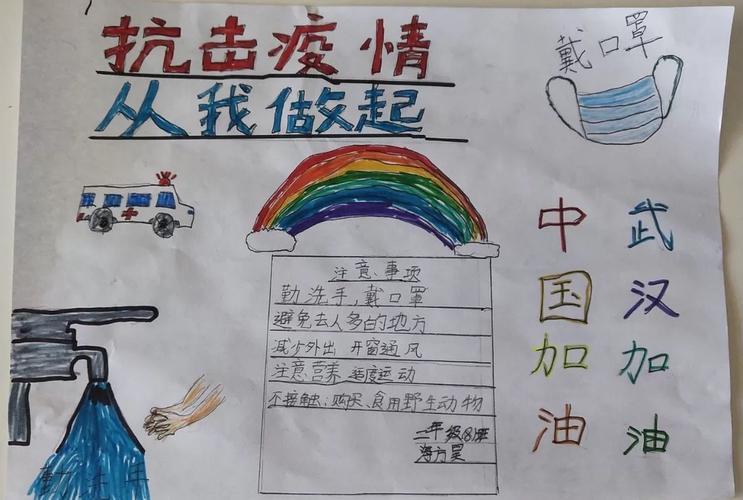 抗击疫情
从我做起
戴口罩
注意事项
勤洗手,戴口罩
避免去人多的地方
减少外出 开窗通风
注意营养 适度运动
不接触;购买、食用野生动物
二年级8班
中国加油
武汉加油
勤洗手